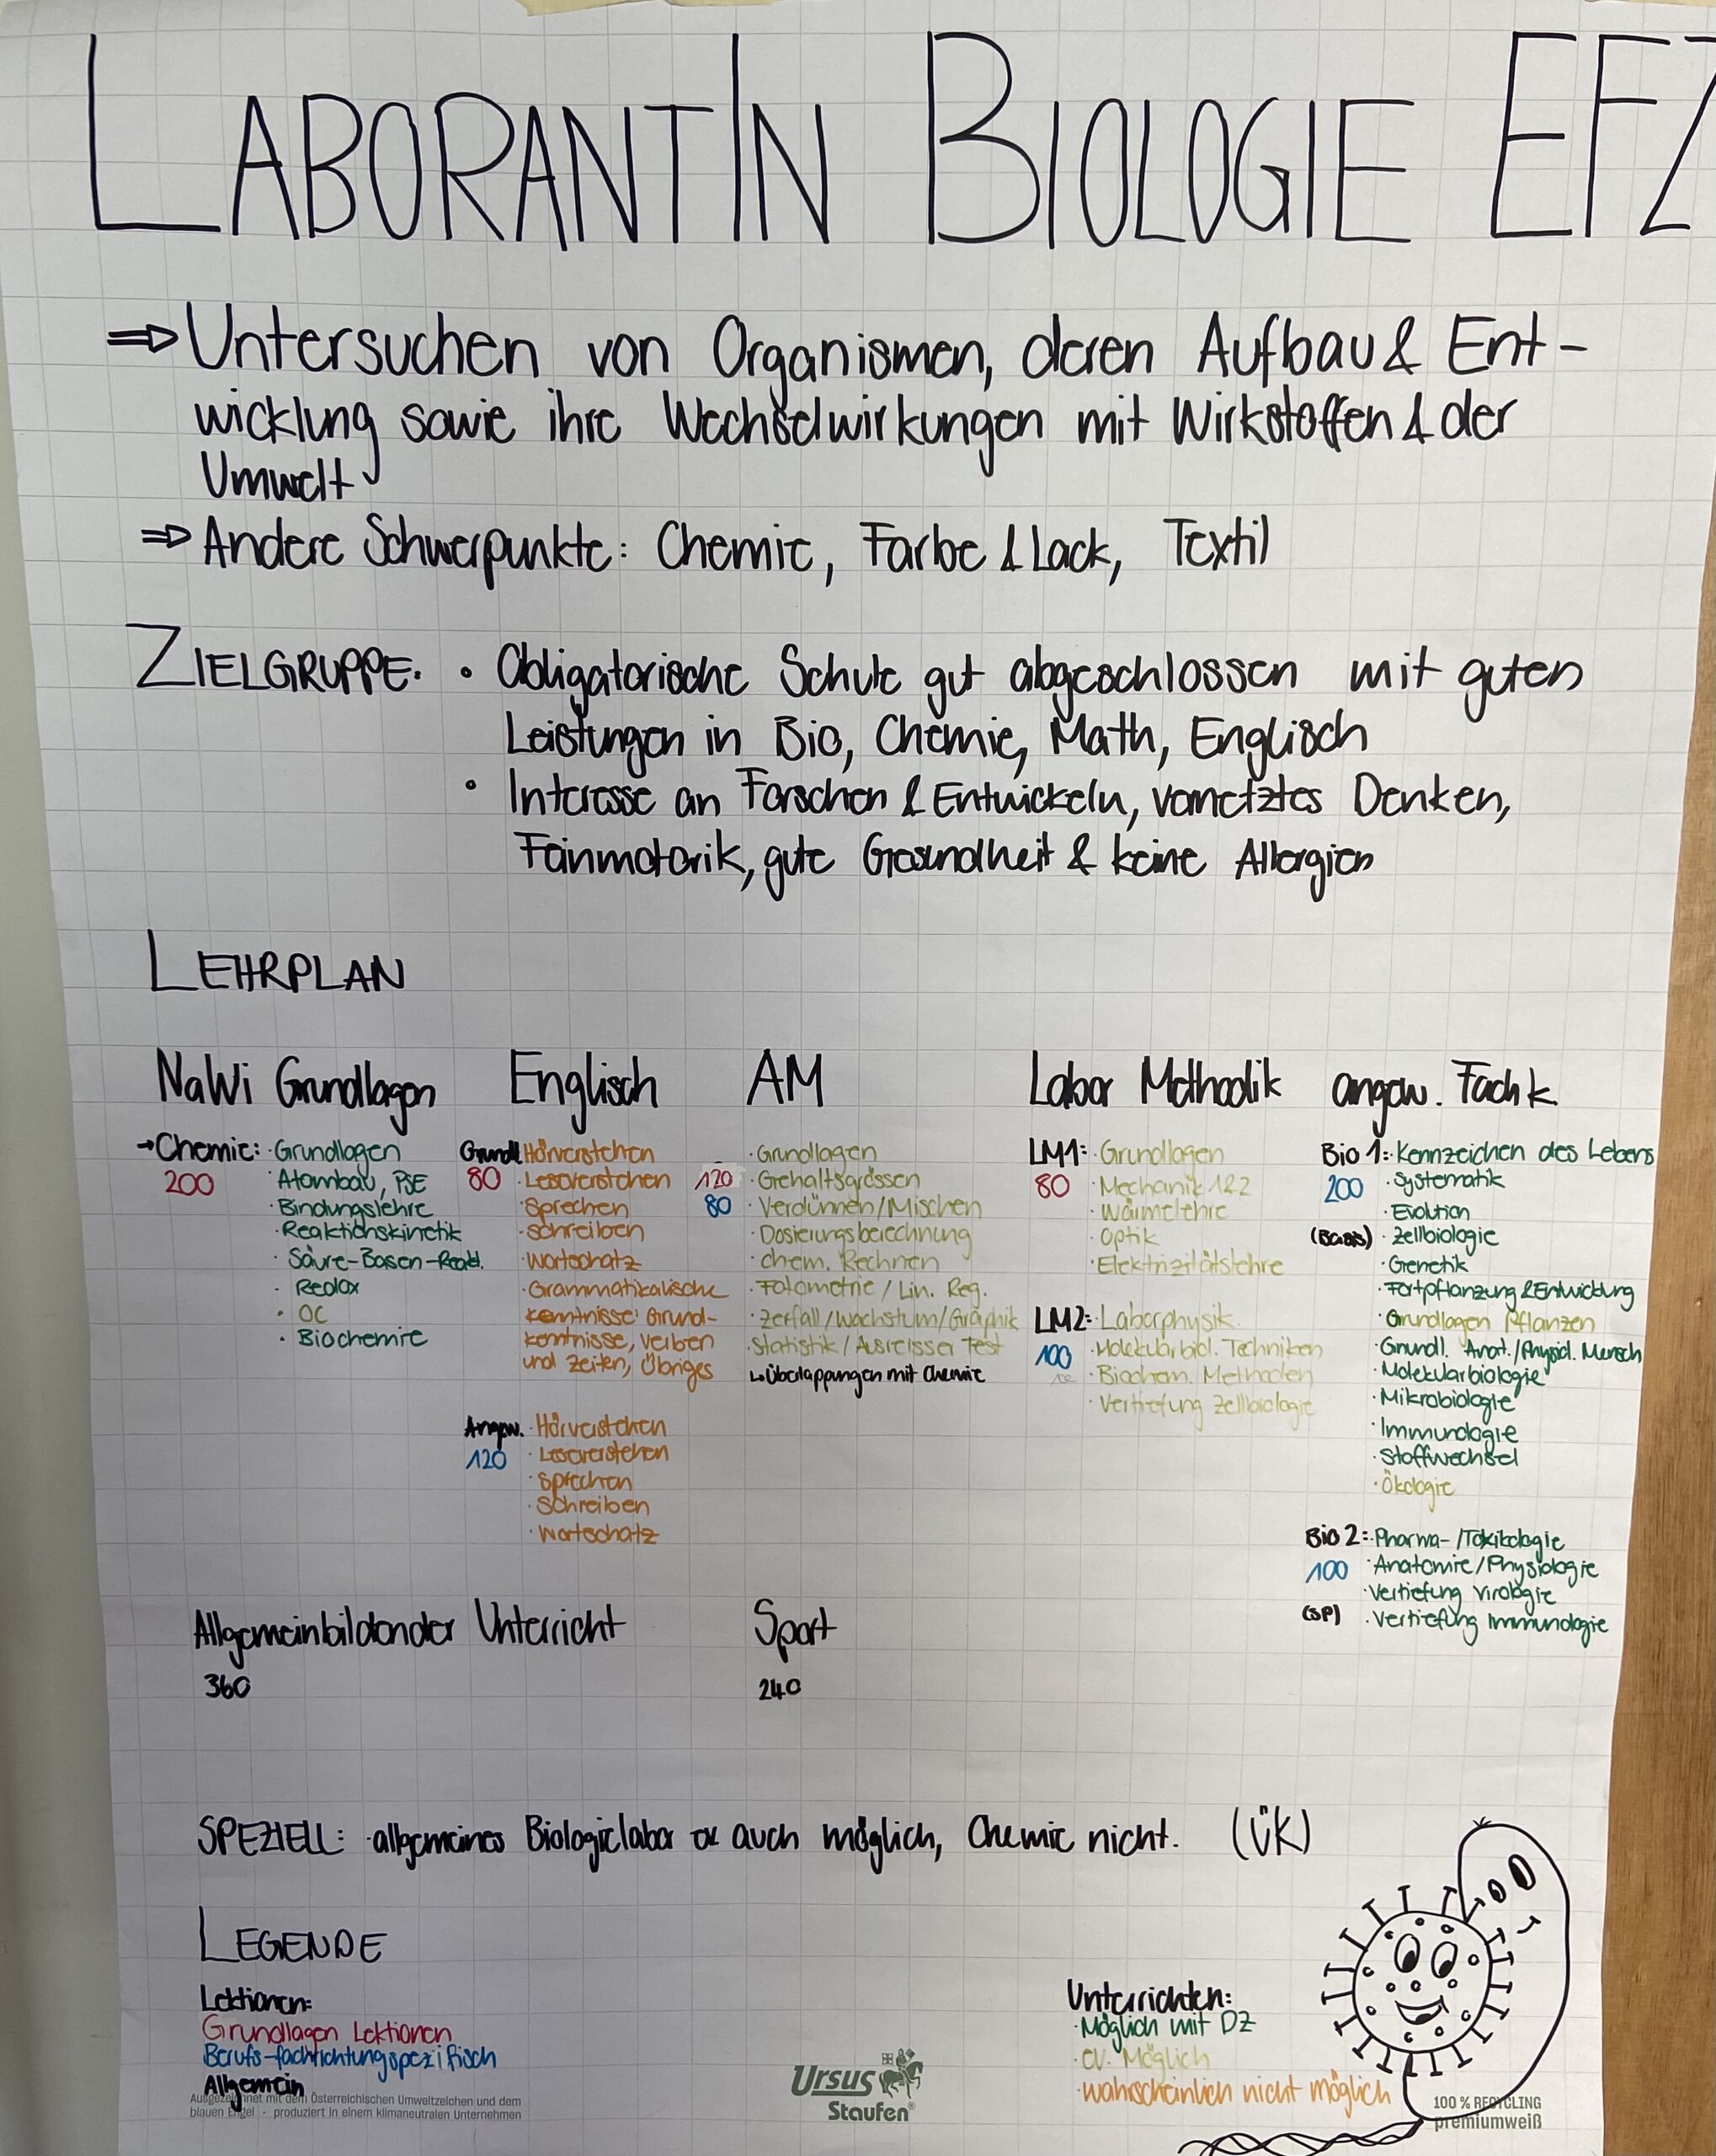 LABORANTIN BIOLOGIE EFZ
⇒ Untersuchen von Organismen, deren Aufbau & Ent-
wicklung sowie ihre Wechselwirkungen mit Wirkstoffen & der
Umwelt
⇒ Andere Schwerpunkte: Chemie, Farbe & Lack, Textil
ZIELGRUPPE: • Obligatorische Schule gut abgeschlossen mit guten
Leistungen in Bio, Chemie, Math, Englisch
• Interesse an Forschen & Entwickeln, vernetztes Denken,
Feinmotorik, gute Gesundheit & keine Allergien
LEHRPLAN
NaWi Grundlagen
→Chemie: · Grundlagen
200 · Atombau, PSE
· Bindungslehre
· Reaktionskinetik
· Säure-Basen-Reakt.
· Redox
· OC
· Biochemie
Englisch
Grundl. Hörverstehen
80 · Leseverstehen
· Sprechen
· Schreiben
· Wortschatz
· Grammatikalische
Kenntnisse: Grund-
kenntnisse, Verben
und Zeiten, Übriges
Angew. · Hörverstehen
120 · Leseverstehen
· Sprechen
· Schreiben
· Wortschatz
AM
· Grundlagen
120 · Gehaltsgrössen
80 · Verdünnen/Mischen
· Dosierungsberechnung
· chem. Rechnen
· Fotometrie / Lin. Reg.
· Zerfall/Wachstum/Graphik
· Statistik / Ausreisser Test
↳ Überlappungen mit Chemie
Labor Methodik
LM1: · Grundlagen
80 · Mechanik 1&2
· Wärmelehre
· Optik
· Elektrizitätslehre
LM2: · Laborphysik
100 · Molekularbiol. Techniken
· Biochem. Methoden
· Vertiefung Zellbiologie
angew. Fachk.
Bio 1: · Kennzeichen des Lebens
200 · Systematik
· Evolution
(Basis) · Zellbiologie
· Genetik
· Fortpflanzung & Entwicklung
· Grundlagen Pflanzen
· Grundl. Anat./Physiol. Mensch
· Molekularbiologie
· Mikrobiologie
· Immunologie
· Stoffwechsel
· Ökologie
Bio 2: · Pharma-/Toxikologie
100 · Anatomie/Physiologie
· Vertiefung Virologie
(SP) · Vertiefung Immunologie
Allgemeinbildender Unterricht
360
Sport
240
SPEZIELL: · allgemeines Biologielabor auch möglich, Chemie nicht. (ÜK)
LEGENDE
Lektionen:
Grundlagen Lektionen
Berufs-fachrichtungspezifisch
Allgemein
Unterrichten:
· Möglich mit DZ
· ev. Möglich
· wahrscheinlich nicht möglich
Ausgezeichnet mit dem Österreichischen Umweltzeichen und dem
blauen Engel - produziert in einem klimaneutralen Unternehmen
Ursus
Staufen®
100 % RECYCLING
premiumweiß